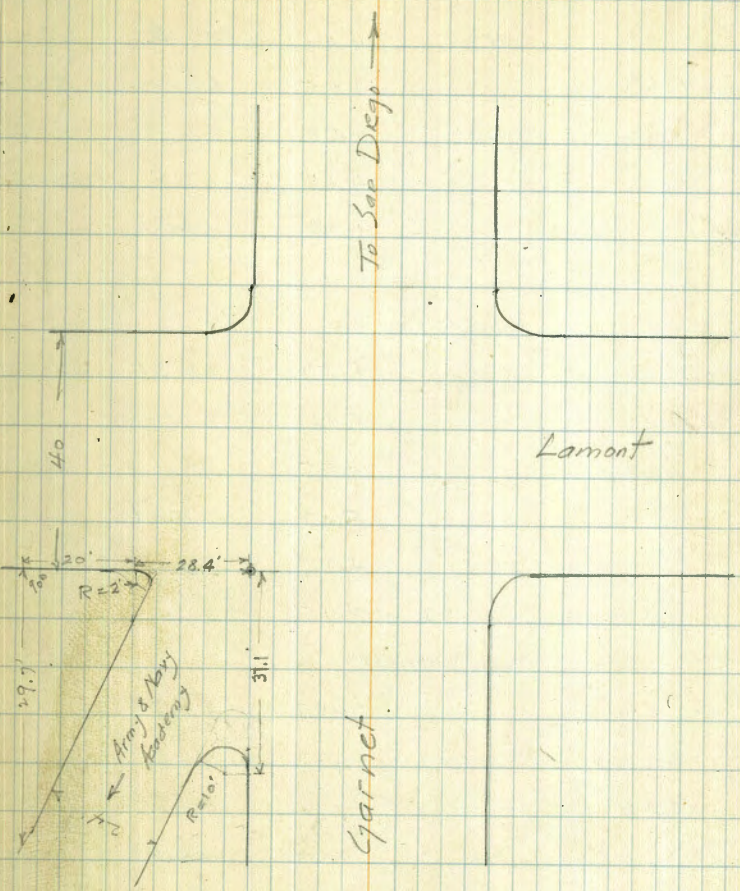 To San Diego
40
Lamont
20'
28.4'
90°
R=2'
29.7'
37.1
Army & Navy
Academy
R=10'
Garnet